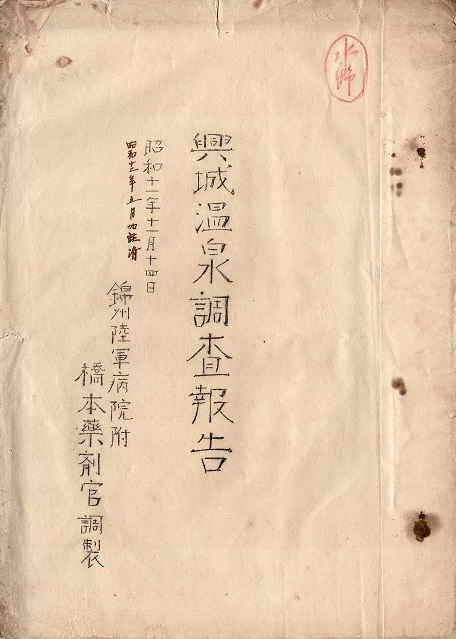 水野
興城温泉調査報告
昭和十一年十一月十四日
昭和十三年五月加註済
錦州陸軍病院附
橋本薬剤官調製